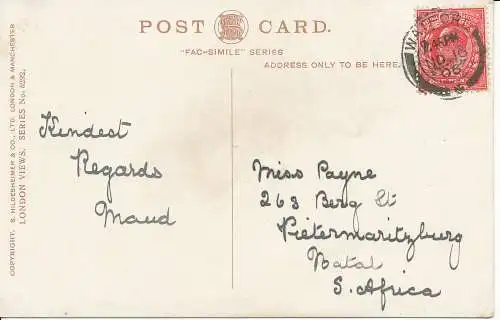 POST CARD.
"FAC-SIMILE" SERIES
ADDRESS ONLY TO BE HERE.
COPYRIGHT. S. HILDESHEIMER & CO., LTD. LONDON & MANCHESTER
LONDON VIEWS. SERIES No. 5292.
Kindest
Regards
Maud
Miss Payne
263 Berg St
Pietermaritzburg
Natal
S. Africa